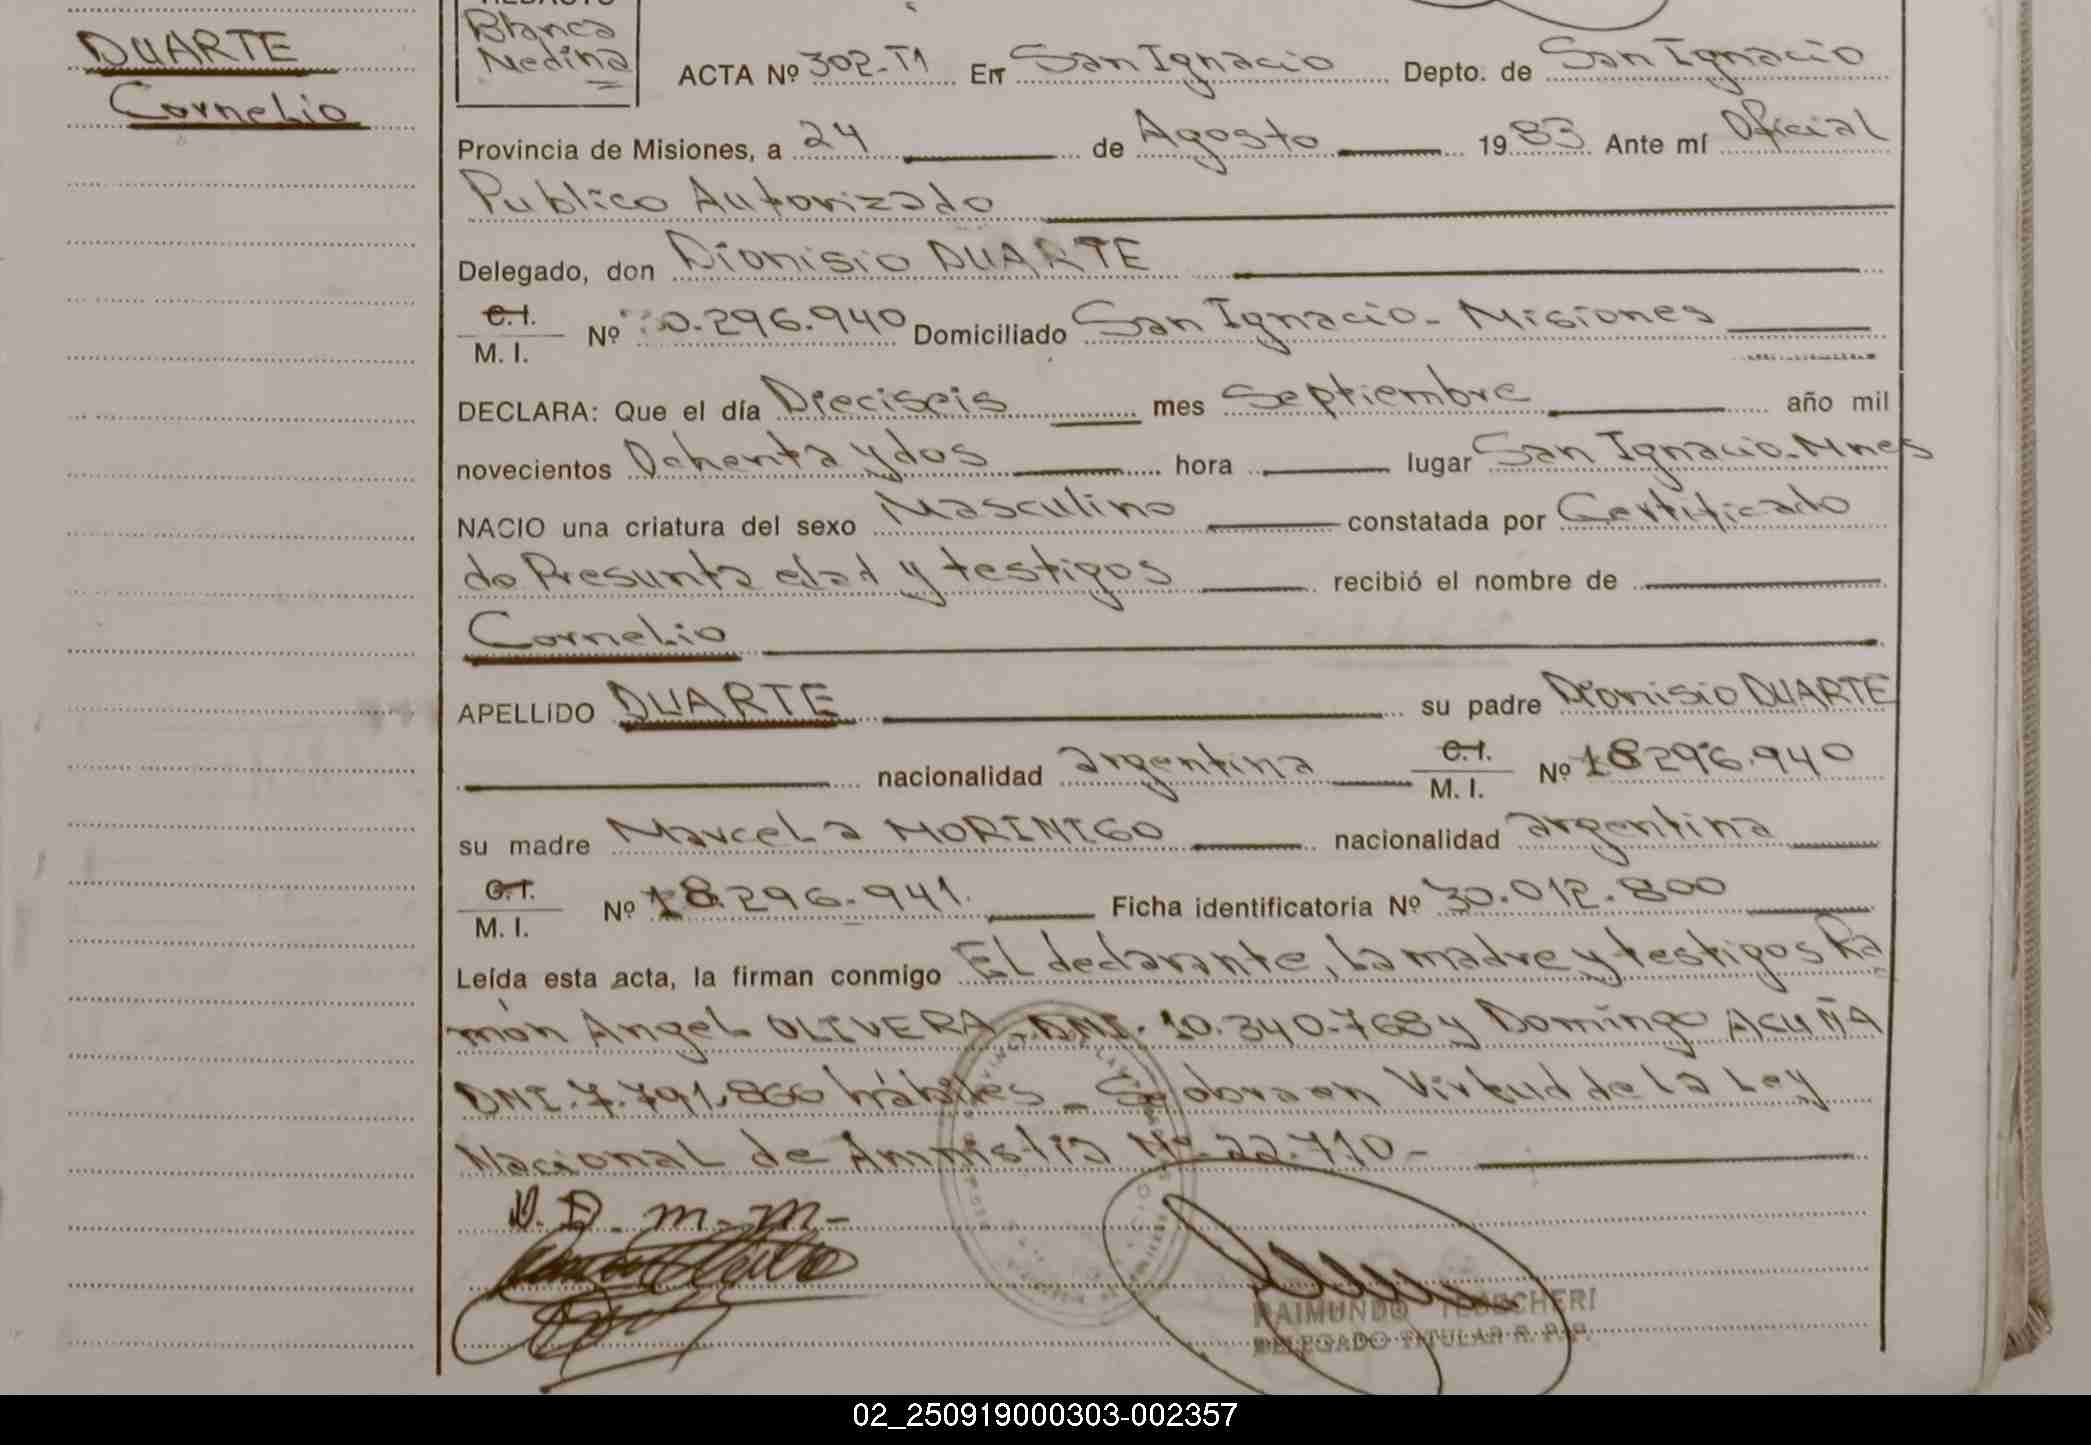 DUARTE
Cornelio
REDACTO
Blanca
Medina
ACTA Nº 302-T1 En San Ignacio Depto. de San Ignacio
Provincia de Misiones, a 24 de Agosto 1983 Ante mí Oficial
Publico Autorizado
Delegado, don Dionisio DUARTE
C.I.
M. I. Nº 0.296.940 Domiciliado San Ignacio - Misiones
DECLARA: Que el día Dieciseis mes Septiembre año mil
novecientos Ochenta y dos hora lugar San Ignacio-Mnes
NACIO una criatura del sexo Masculino constatada por Certificado
de Presunta edad y testigos recibió el nombre de
Cornelio
APELLIDO DUARTE su padre Dionisio DUARTE
nacionalidad argentina C.I.
M. I. Nº 18296.940
su madre Marcela MORINIGO nacionalidad argentina
C.I.
M. I. Nº 18.296.941. Ficha identificatoria Nº 30.012.800
Leída esta acta, la firman conmigo El declarante, la madre y testigos Ra
món Angel OLIVERA, DNI. 10.340.768 y Domingo ACUÑA
DNI. 7.791.866 hábiles - Se obra en Virtud de la Ley
Nacional de Amnistia Nº 22.710-
D. D. m. m-
RAIMUNDO TEDSCHERI
DELEGADO TITULAR R. P. P.
02_250919000303-002357